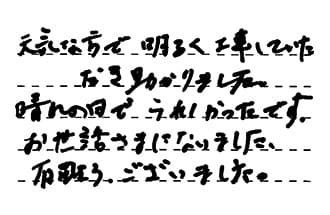 元気な方で明るく工事していた
だき助かりました
晴れの日でうれしかったです。
お世話さまになりました、
有難う、ございました。